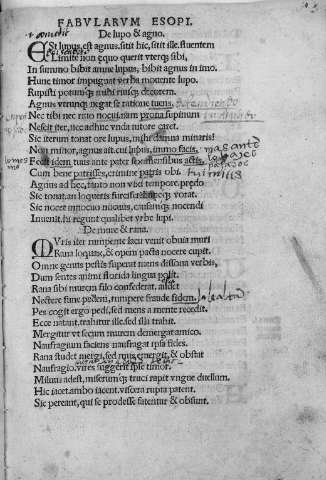 FABVLARVM ESOPI.
De lupo & agno.
ESt lupus, est agnus. sitit hic, sitit ille. fluentem
Limite non equo querit vterq; sibi,
In summo bibit amne lupus, bibit agnus in imo.
Hunc timor impugnat verba mouente lupo.
Rupisti potumq; mihi riuiq; decorem.
Agnus vtrunq; negat se ratione tuens.
Nec tibi nec riuo nocui. nam prona supinum
Nescit iter, nec adhuc vnda nitore caret.
Sic iterum tonat ore lupus, mihi damna minaris?
Non minor, agnus ait. cui lupus, immo facis.
Fecit idem tuus ante pater sex mensibus actis.
Cum bene patrisses, crimine patris obi.
Agnus ad hec, tanto non vixi tempore. predo
Sic tonat. an loqueris furcifer? huncq; vorat.
Sic nocet innocuo nocuus, causamq; nocendi
Inuenit. hi regnant qualibet vrbe lupi.
De mure & rana.
MVris iter rumpente lacu venit obuia muri
Rana loquax, & opem pacta nocere cupit.
Omne genus pestis superat mens dissona verbis,
Dum sentes animi florida lingua polit.
Rana sibi murem filo confederat. audet
Nectere fune pedem, rumpere fraude fidem.
Pes coit ergo pedi, sed mens a mente recedit.
Ecce natant. trahitur ille. sed illa trahit.
Mergitur vt secum murem demergat. amico
Naufragium faciens naufragat ipsa fides.
Rana studet mergi, sed mus emergit, & obstat
Naufragio. vires suggerit ipse timor.
Miluus adest, miserumq; truci rapit vngue duellum.
Hic iacet. ambo iacent. viscera rupta patent.
Sic pereant, qui se prodesse fatentur & obsunt.